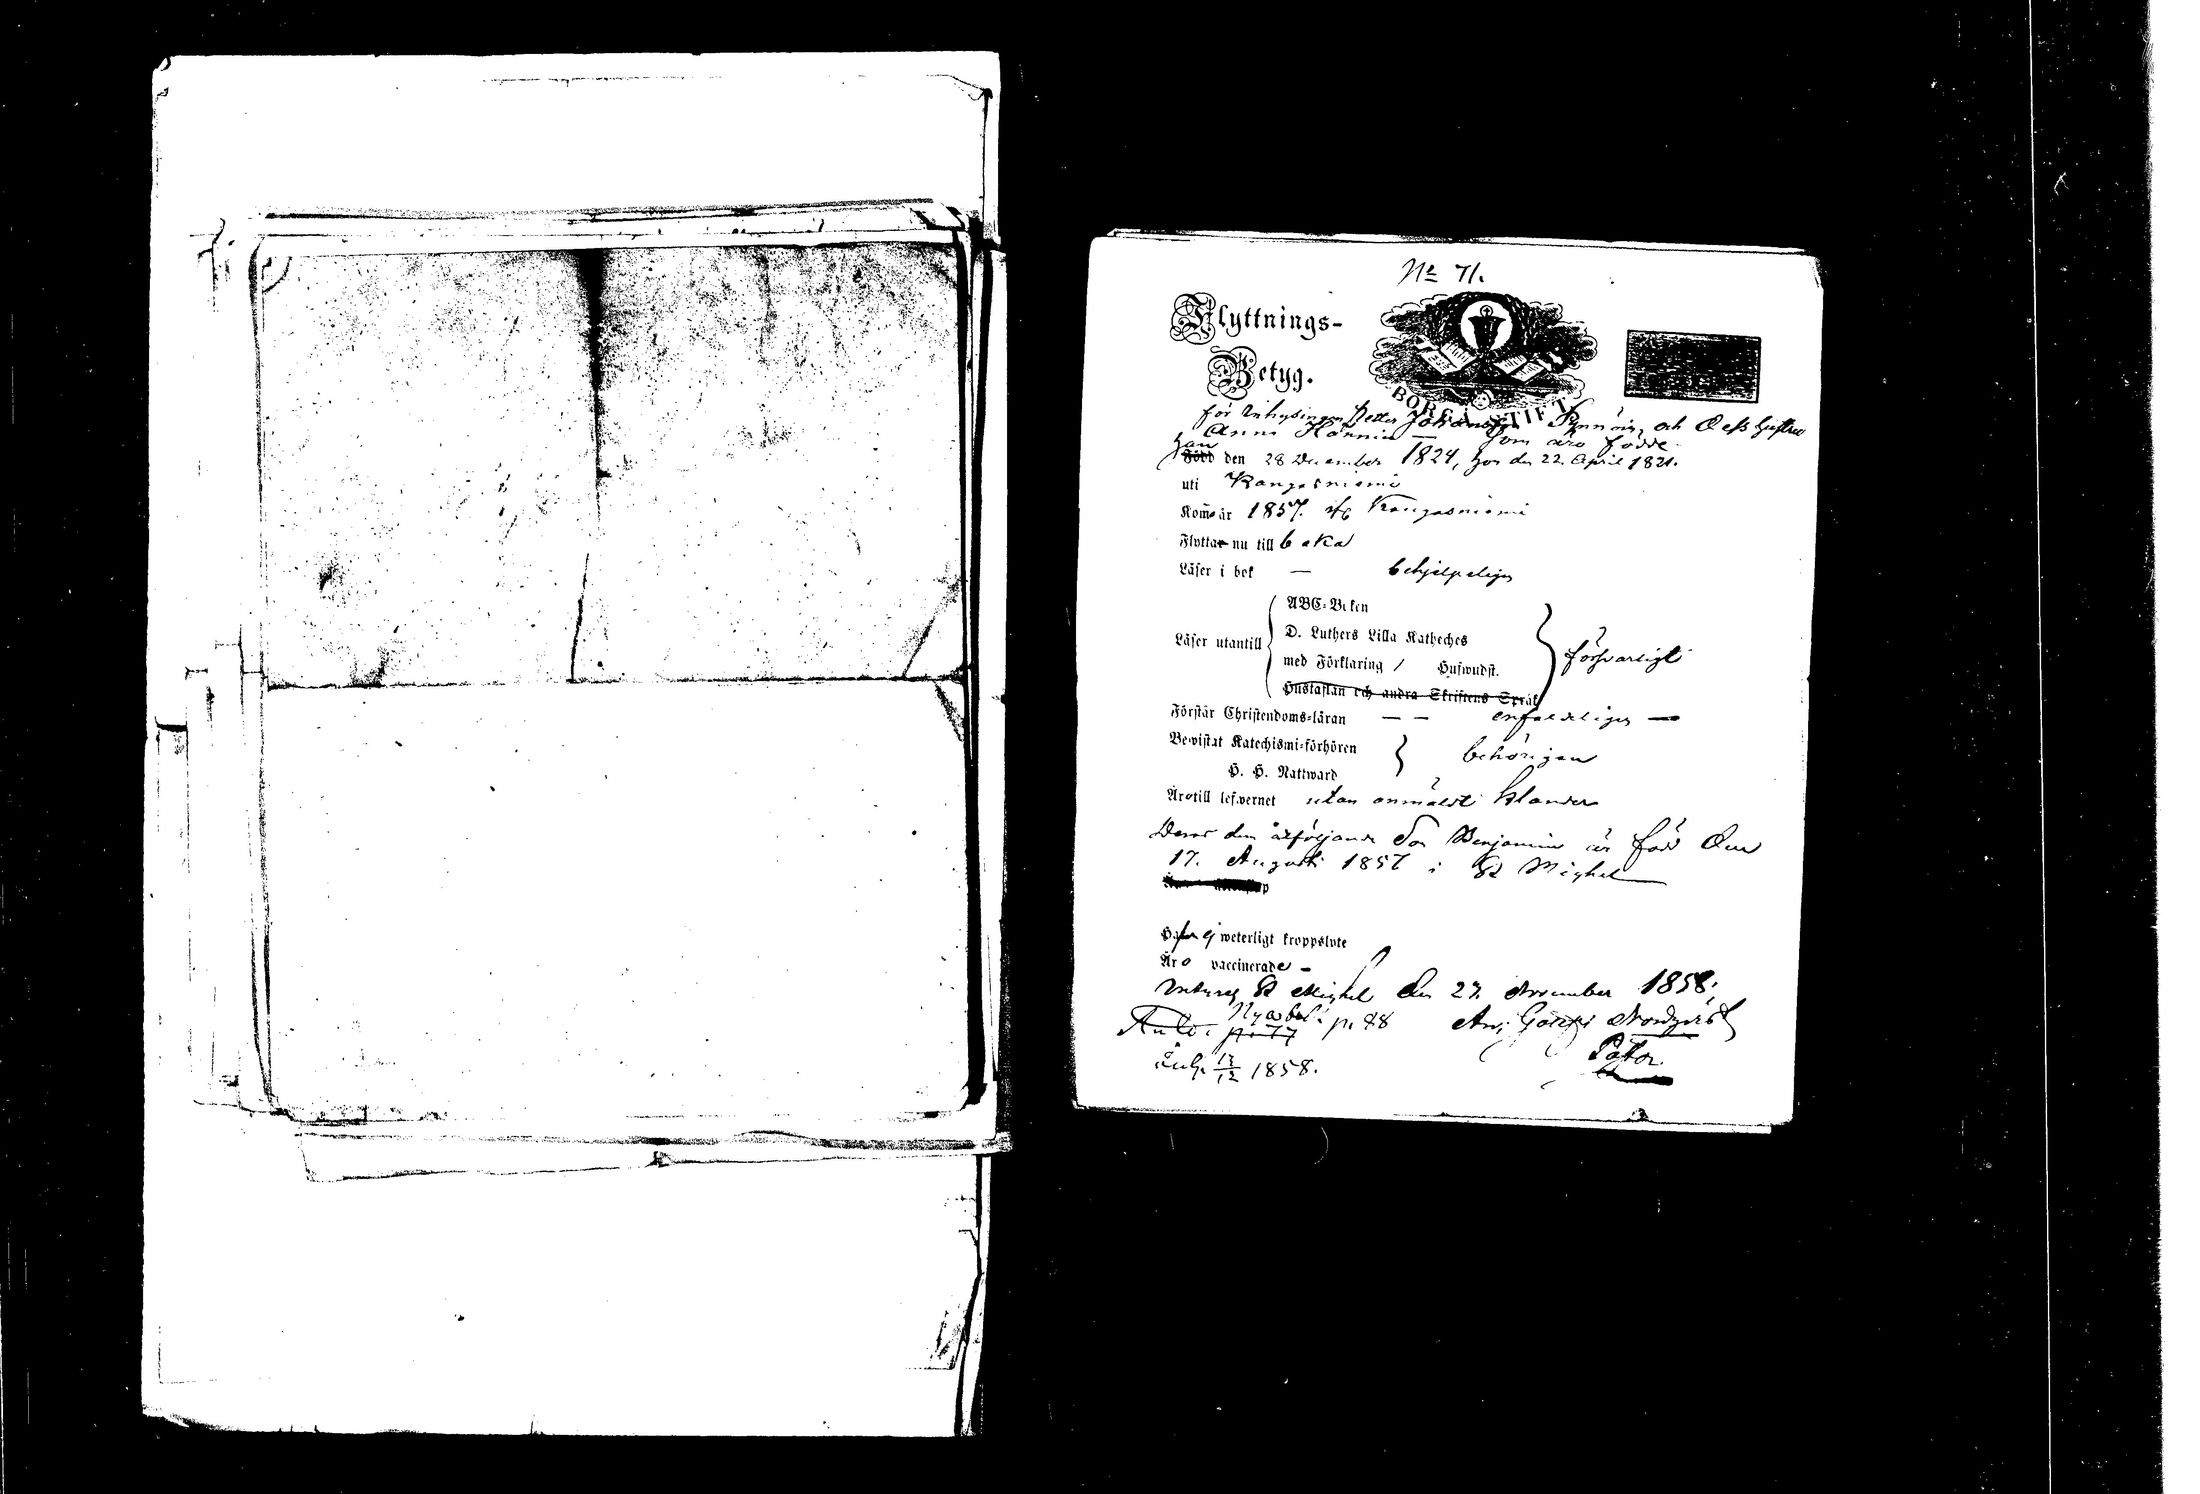 No 71.
Flyttnings-
Betyg.
BORGÅ STIFT
för Inhysingen Petter Johansson Pynnöin, och Deß hustru
Anna Hännin — Som äro födde
han
Född den 28 December 1824, hon den 22. April 1821.
uti Kangasniemi
Kom år 1857. ifr Kangasniemi
Flyttar nu till baka
Läser i bok — behjelpeligen
ABC-Boken
D. Luthers Lilla Katheches
Läser utantill
med Förklaring / Huswudst.
försvarligt
Hustaflan och andra Skriftens Språk
Förstår Christendoms-läran — — enfaldeligen —
Bewistat Katechismi-förhören
behörigen
H. H. Nattward
Äro till lefwernet utan anmäldt klander
Deras dem åtföljande Son Benjamin är född den
17. Augusti 1857 i St Michel
Hafva ej weterligt kroppslyte
Äro vaccinerade —
St Michel den 27. November 1858.
p. 77 p. 88
Nordqvist
Pastor
13/12 1858.